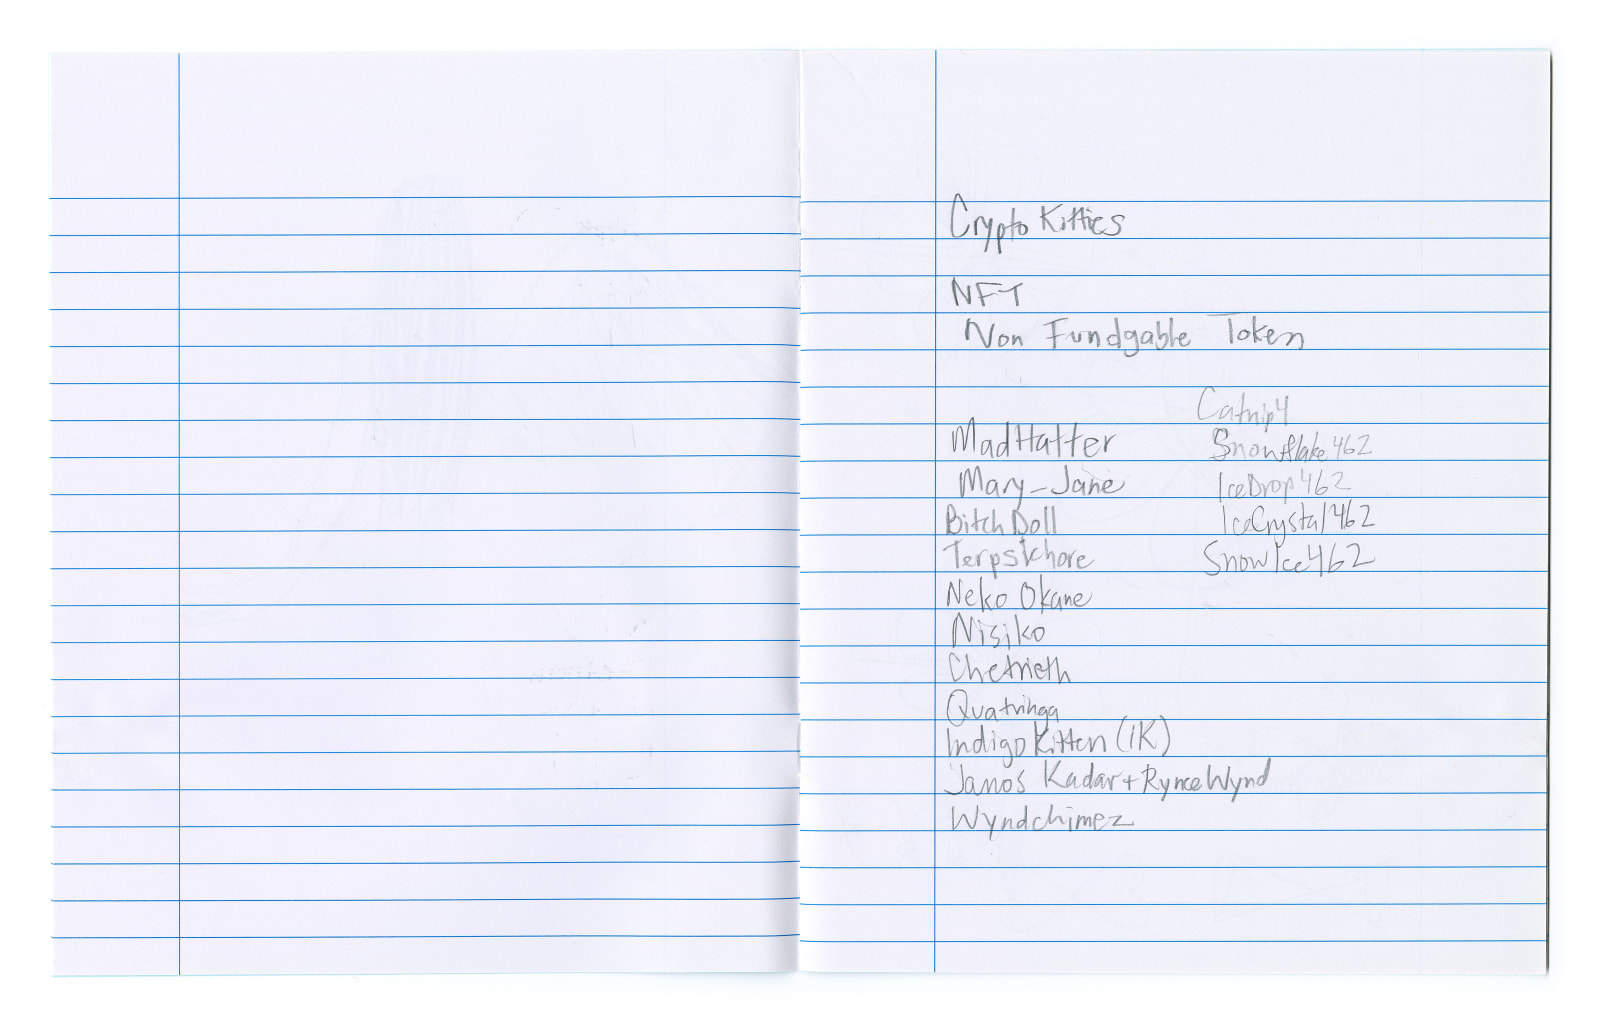 Crypto Kitties
NFT
Non Fundgable Token
Catnip4
MadHatter Snowflake462
Mary-Jane IceDrop462
Bitch Doll IceCrystal462
Terpsichore SnowIce462
Neko Okane
Nisiko
Chetrieth
Quatringa
Indigo Kitten (IK)
Janos Kadar + RynceWynd
Wyndchimez